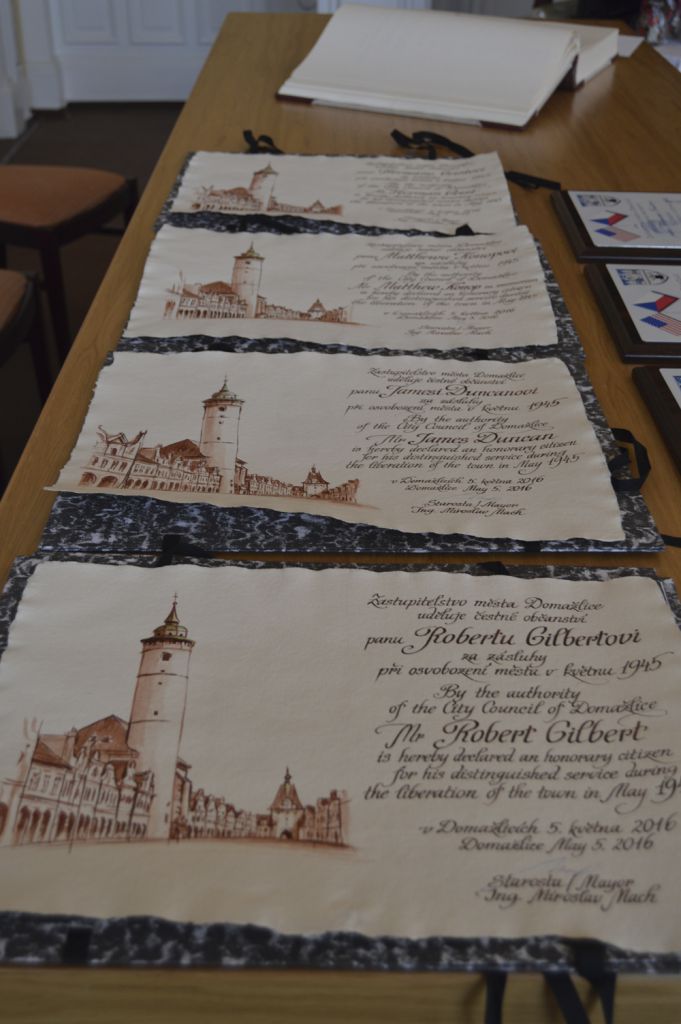 panu Matthewu Konopovi
za zásluhy
1945
By the authority
Mr. Matthew Konop
Domažlice May 5. 2016
Starosta / Mayor
Ing. Miroslav Mach
Zastupitelstvo města Domažlice
uděluje čestné občanství
panu Jamesi Duncanovi
za zásluhy
při osvobození města v květnu 1945
By the authority
of the City Council of Domažlice
Mr James Duncan
is hereby declared an honorary citizen
for his distinguished service during
the liberation of the town in May 1945
v Domažlicích 5. května 2016
Domažlice May 5. 2016
Starosta / Mayor
Ing. Miroslav Mach
Zastupitelstvo města Domažlice
uděluje čestné občanství
panu Robertu Gilbertovi
za zásluhy
při osvobození města v květnu 1945
By the authority
of the City Council of Domažlice
Mr Robert Gilbert
is hereby declared an honorary citizen
for his distinguished service during
the liberation of the town in May 194
v Domažlicích 5. května 2016
Domažlice May 5. 2016
Starosta / Mayor
Ing. Miroslav Mach